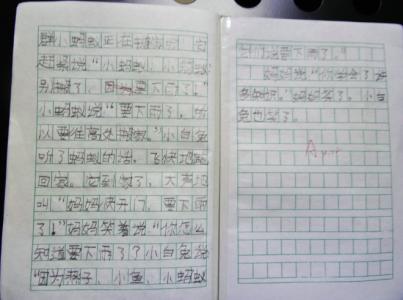 群小蚂蚁正在搬家呢！它
赶紧说“小蚂蚁，小蚂蚁
别搬了，要下雨了。”
小蚂蚁说“要下雨了，所
以要往高处搬家。”小白兔
听了蚂蚁的话，飞快地跑
回家。它到家了，大声地
叫“妈妈快开门，要下雨
了！”妈妈笑着说“你怎么
知道要下雨了？小白兔说
“因为燕子、小鱼、小蚂蚁
它们说要下雨了。”
妈妈说“你学会了许
多知识。”妈妈笑了。小白
兔也笑了。
A